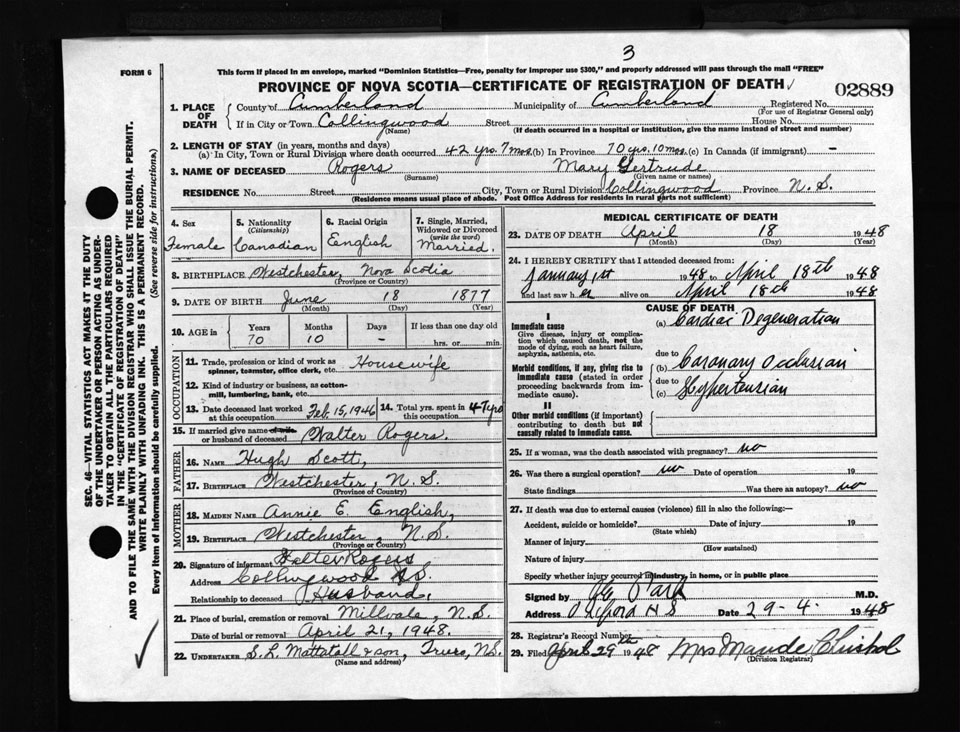 3
FORM 6
This form if placed in an envelope, marked "Dominion Statistics—Free, penalty for improper use $300," and properly addressed will pass through the mail "FREE"
PROVINCE OF NOVA SCOTIA—CERTIFICATE OF REGISTRATION OF DEATH
02889
1. PLACE OF DEATH
County of Cumberland Municipality of Cumberland Registered No.
(For use of Registrar General only)
If in City or Town Collingwood Street House No.
(Name) (If death occurred in a hospital or institution, give the name instead of street and number)
2. LENGTH OF STAY (in years, months and days)
(a) In City, Town or Rural Division where death occurred 42 yrs. 7 mos. (b) In Province 70 yrs. 10 mos. (c) In Canada (if immigrant) -
3. NAME OF DECEASED Rogers Mary Gertrude
(Surname) (Given name or names)
RESIDENCE No. Street City, Town or Rural Division Collingwood Province N.S.
(Residence means usual place of abode. Post Office Address for residents in rural parts not sufficient)
4. Sex Female
5. Nationality (Citizenship) Canadian
6. Racial Origin English
7. Single, Married, Widowed or Divorced (write the word) Married.
8. BIRTHPLACE Westchester, Nova Scotia
(Province or Country)
9. DATE OF BIRTH June 18 1877
(Month) (Day) (Year)
10. AGE in Years Months Days If less than one day old
70 10 - hrs. or min.
OCCUPATION
11. Trade, profession or kind of work as spinner, teamster, office clerk, etc. Housewife
12. Kind of industry or business, as cotton-mill, lumbering, bank, etc.
13. Date deceased last worked at this occupation Feb 15, 1946
14. Total yrs. spent in this occupation 47 yrs
15. If married give name of wife or husband of deceased Walter Rogers.
FATHER
16. NAME Hugh Scott,
17. BIRTHPLACE Westchester, N.S.
(Province or Country)
MOTHER
18. MAIDEN NAME Annie E. English,
19. BIRTHPLACE Westchester, N.S.
(Province or Country)
20. Signature of informant Walter Rogers
Address Collingwood N S.
Relationship to deceased Husband,
21. Place of burial, cremation or removal Millvale, N.S.
Date of burial or removal April 21, 1948.
22. UNDERTAKER S.L. Mattatall & son, Truro, N.S.
(Name and address)
MEDICAL CERTIFICATE OF DEATH
23. DATE OF DEATH April 18 1948
(Month) (Day) (Year)
24. I HEREBY CERTIFY that I attended deceased from:
January 1st 1948 to April 18th 1948
and last saw h er alive on April 18th 1948
CAUSE OF DEATH
I
Immediate cause
Give disease, injury or complication which caused death, not the mode of dying, such as heart failure, asphyxia, asthenia, etc.
(a) Cardiac Degeneration
due to
Morbid conditions, if any, giving rise to immediate cause (stated in order proceeding backwards from immediate cause).
(b) Coronary Occlusion
due to
(c) Hypertension
II
Other morbid conditions (if important) contributing to death but not causally related to immediate cause.
25. If a woman, was the death associated with pregnancy? no
26. Was there a surgical operation? no Date of operation 19
State findings Was there an autopsy? no
27. If death was due to external causes (violence) fill in also the following:—
Accident, suicide or homicide? Date of injury 19
(State which)
Manner of injury
(How sustained)
Nature of injury
Specify whether injury occurred in industry, in home, or in public place
Signed by M.D.
Address Oxford N S Date 29-4- 1948
28. Registrar's Record Number
29. Filed April 29th 1948 Mrs Maude Chishol
(Division Registrar)
SEC. 46—VITAL STATISTICS ACT MAKES IT THE DUTY
OF THE UNDERTAKER OR PERSON ACTING AS UNDER-
TAKER TO OBTAIN ALL THE PARTICULARS REQUIRED
IN THE "CERTIFICATE OF REGISTRATION OF DEATH"
AND TO FILE THE SAME WITH THE DIVISION REGISTRAR WHO SHALL ISSUE THE BURIAL PERMIT.
WRITE PLAINLY WITH UNFADING INK. THIS IS A PERMANENT RECORD.
Every Item of Information should be carefully supplied. (See reverse side for instructions.)